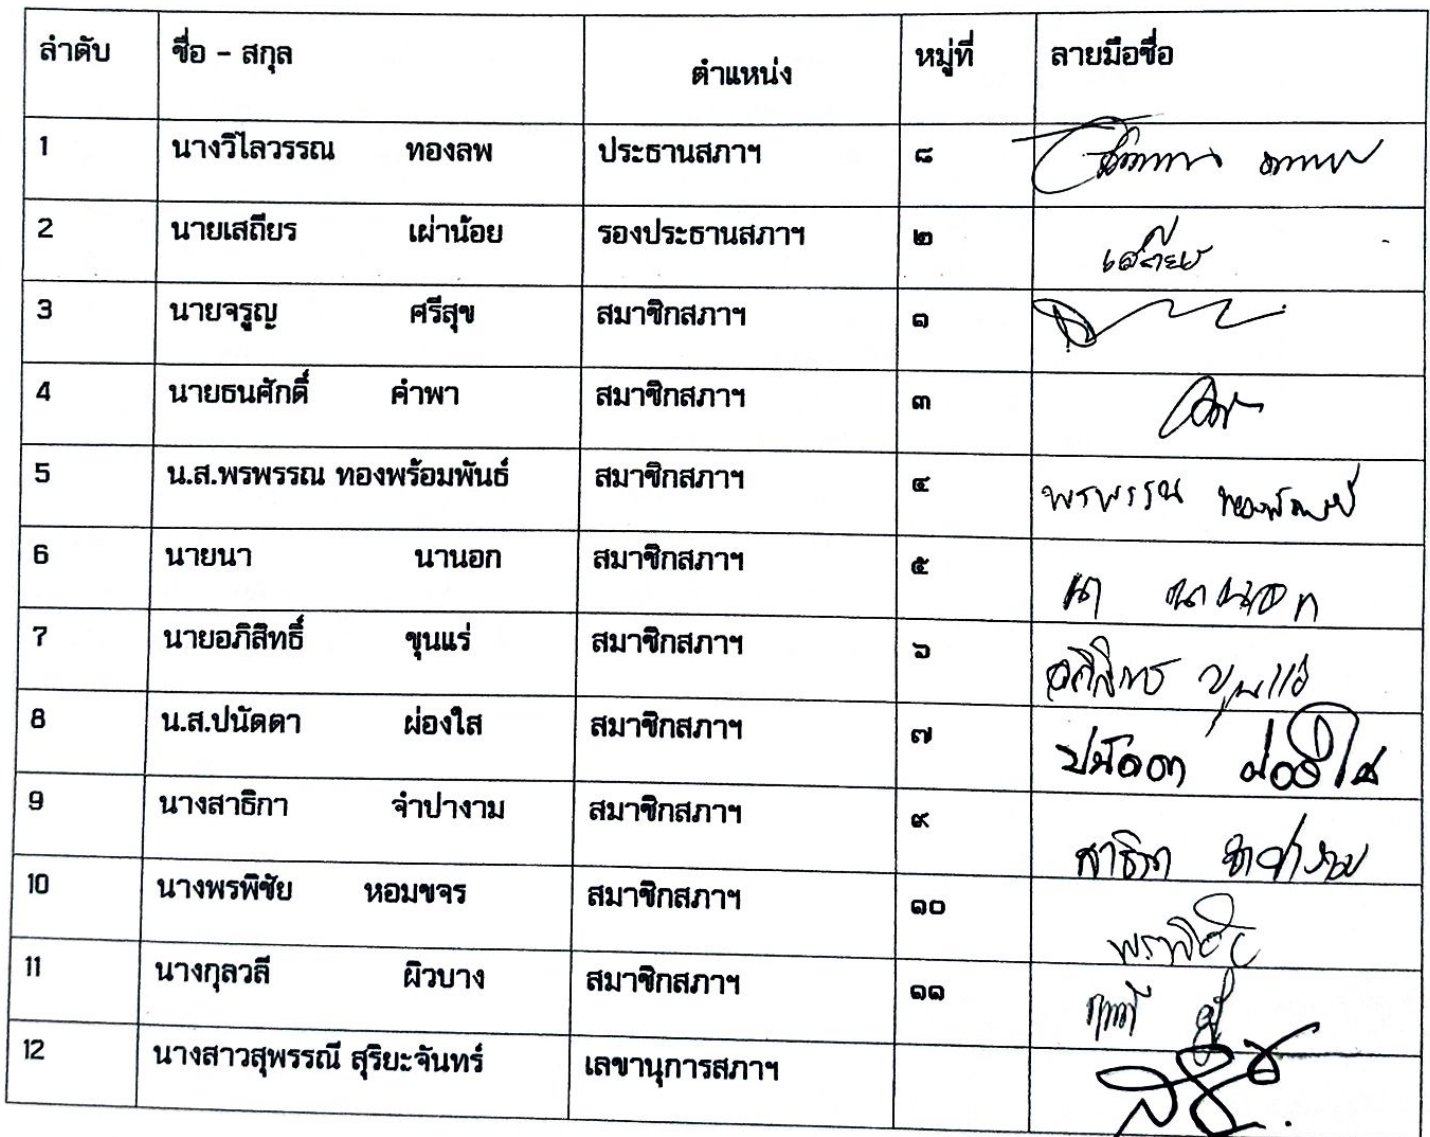 ลำดับ ชื่อ - สกุล ตำแหน่ง หมู่ที่ ลายมือชื่อ
1 นางวิไลวรรณ ทองลพ ประธานสภาฯ ๘
2 นายเสถียร เผ่าน้อย รองประธานสภาฯ ๒ เสถียร
3 นายจรูญ ศรีสุข สมาชิกสภาฯ ๑
4 นายธนศักดิ์ คำพา สมาชิกสภาฯ ๓
5 น.ส.พรพรรณ ทองพร้อมพันธ์ สมาชิกสภาฯ ๔ พรพรรณ
6 นายนา นานอก สมาชิกสภาฯ ๕ นา นานอก
7 นายอภิสิทธิ์ ขุนแร่ สมาชิกสภาฯ ๖
8 น.ส.ปนัดดา ผ่องใส สมาชิกสภาฯ ๗ ปนัดดา ผ่องใส
9 นางสาธิกา จำปางาม สมาชิกสภาฯ ๙ สาธิกา จำปางาม
10 นางพรพิชัย หอมขจร สมาชิกสภาฯ ๑๐
11 นางกุลวลี ผิวบาง สมาชิกสภาฯ ๑๑
12 นางสาวสุพรรณี สุริยะจันทร์ เลขานุการสภาฯ